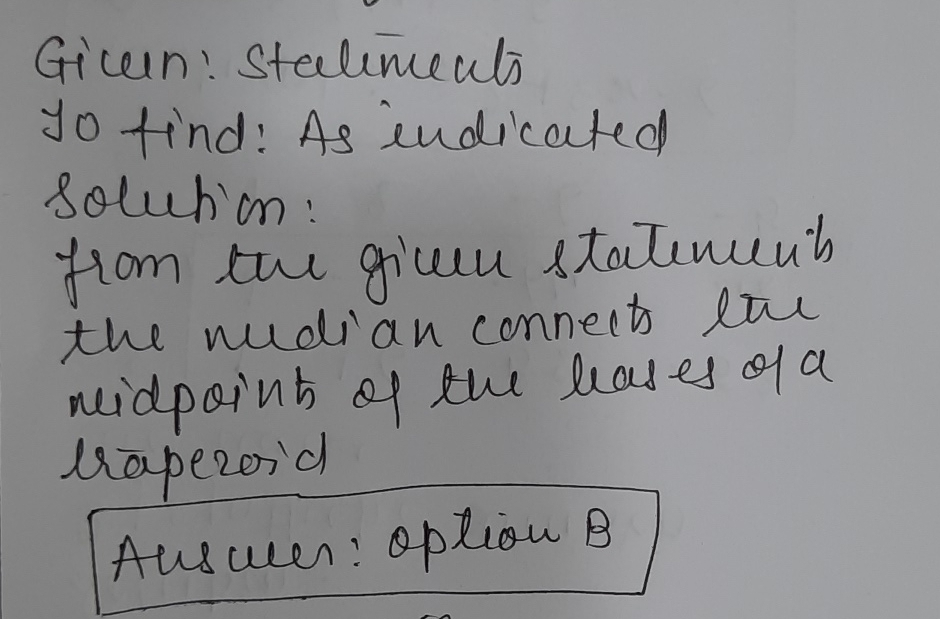 Given: Statements
To find: As indicated
Solution:
from the given statements
the median connects the
midpoints of the bases of a
trapezoid
Answer: option B